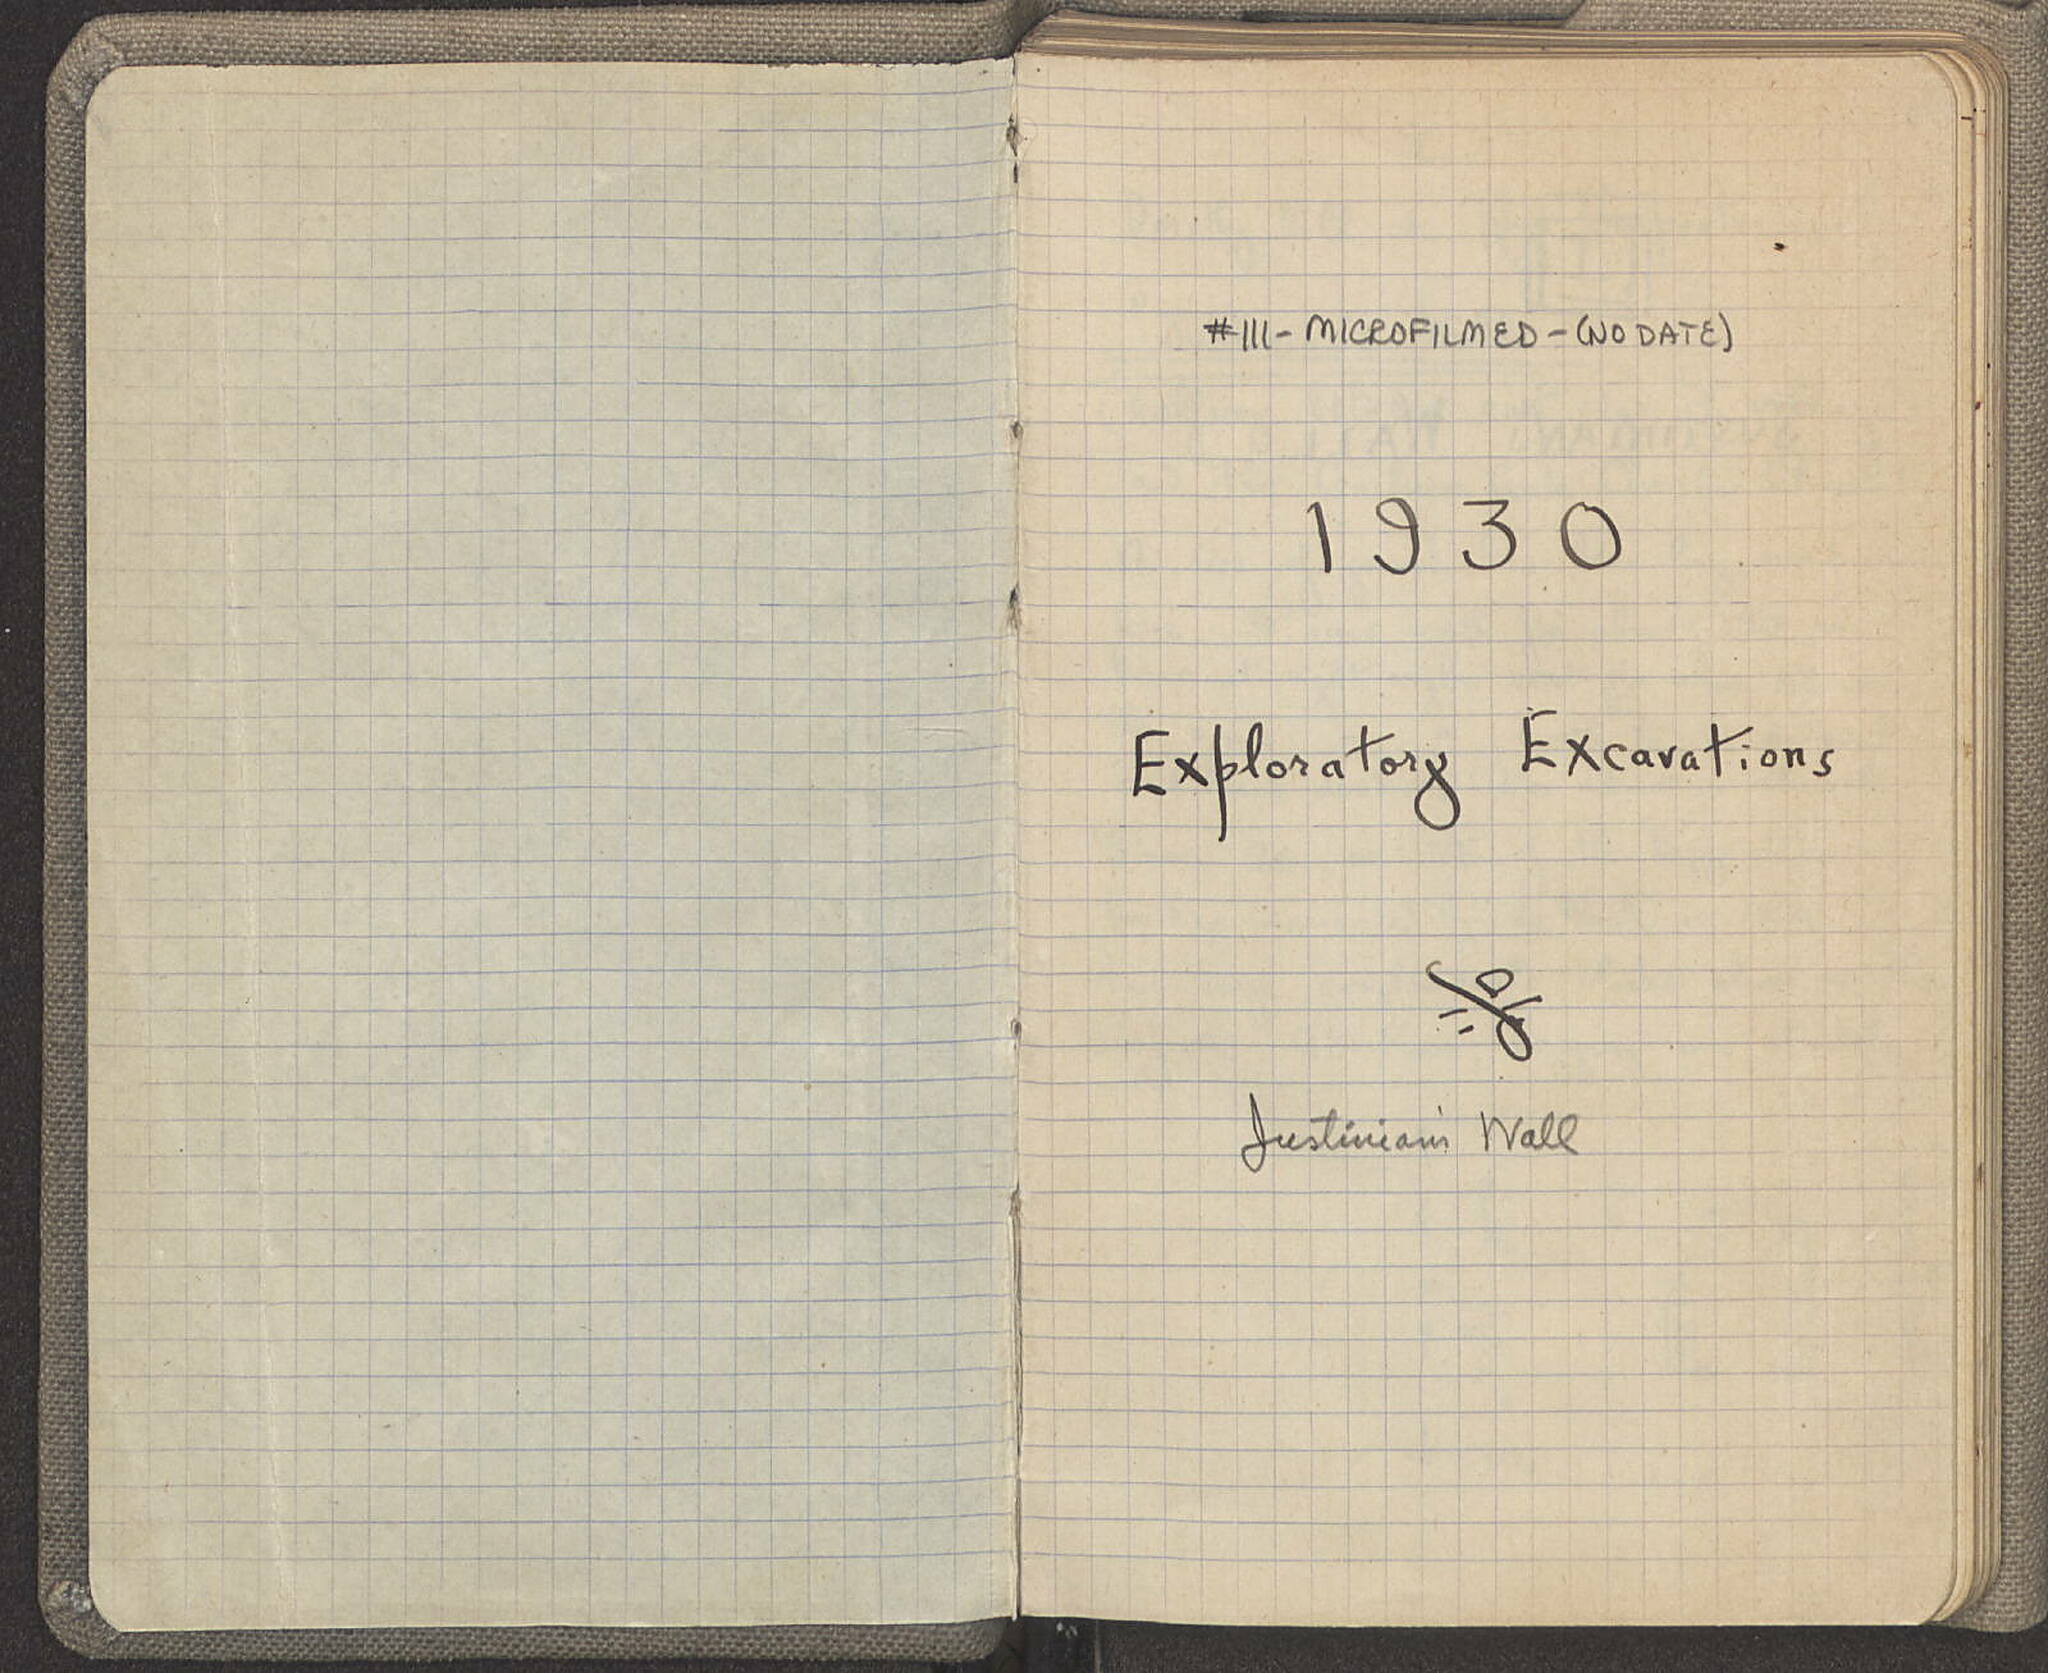 #111 - MICROFILMED - (NO DATE)
1930
Exploratory Excavations
Justinian's Wall